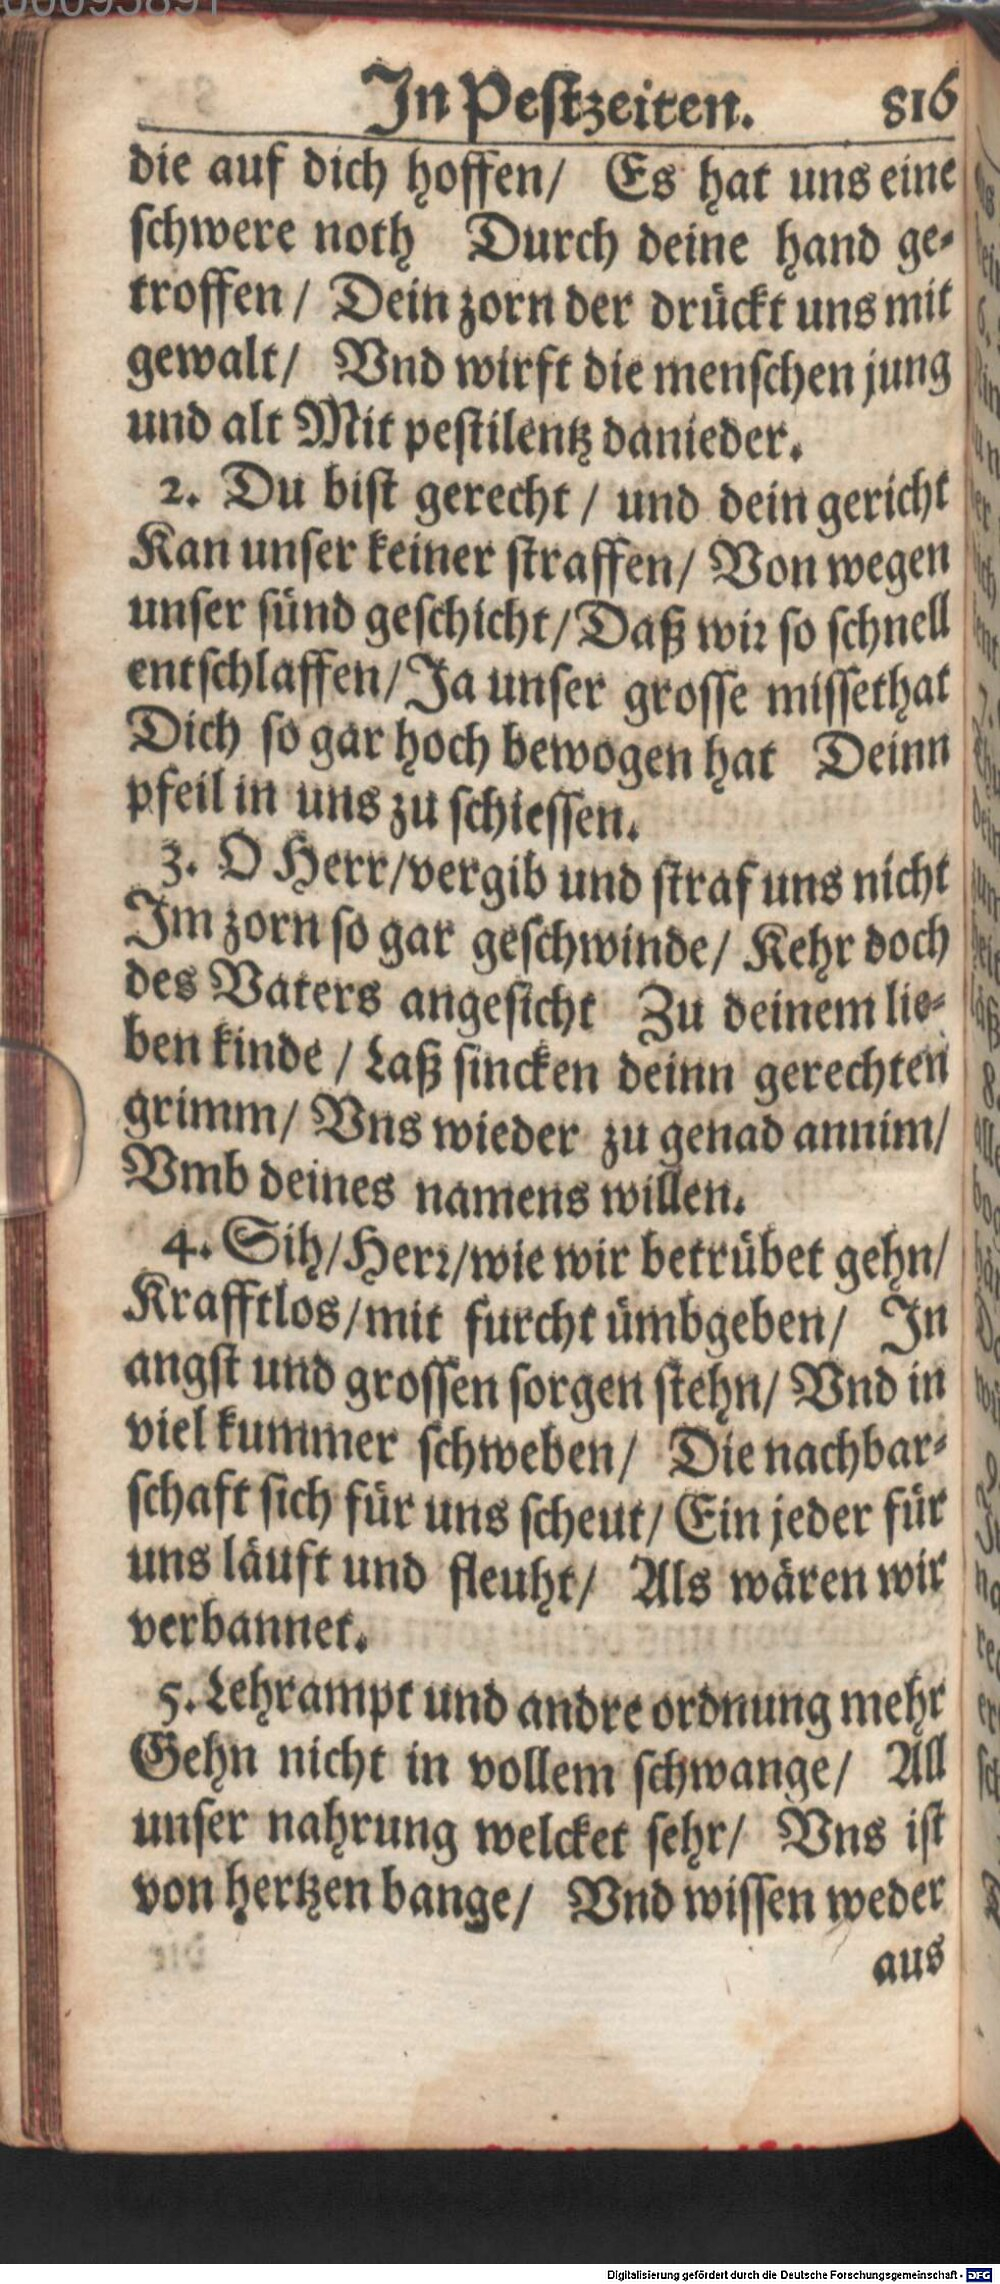 00095891
In Pestzeiten. 816
die auf dich hoffen/ Es hat uns eine
schwere noth Durch deine hand ge-
troffen/ Dein zorn der drückt uns mit
gewalt/ Vnd wirft die menschen jung
und alt Mit pestilentz danieder.
2. Du bist gerecht/ und dein gericht
Kan unser keiner straffen/ Von wegen
unser sünd geschicht/ Daß wir so schnell
entschlaffen/ Ja unser grosse missethat
Dich so gar hoch bewogen hat Deinn
pfeil in uns zu schiessen.
3. O Herr/ vergib und straf uns nicht
Im zorn so gar geschwinde/ Kehr doch
des Vaters angesicht Zu deinem lie-
ben kinde/ Laß sincken deinn gerechten
grimm/ Vns wieder zu genad annim/
Vmb deines namens willen.
4. Sih/ Herr/ wie wir betrübet gehn/
Krafftlos/ mit furcht ümbgeben/ In
angst und grossen sorgen stehn/ Vnd in
viel kummer schweben/ Die nachbar-
schaft sich für uns scheut/ Ein jeder für
uns läuft und fleuht/ Als wären wir
verbannet.
5. Lehrampt und andre ordnung mehr
Gehn nicht in vollem schwange/ All
unser nahrung welcket sehr/ Vns ist
von hertzen bange/ Vnd wissen weder
aus
Digitalisierung gefördert durch die Deutsche Forschungsgemeinschaft - DFG